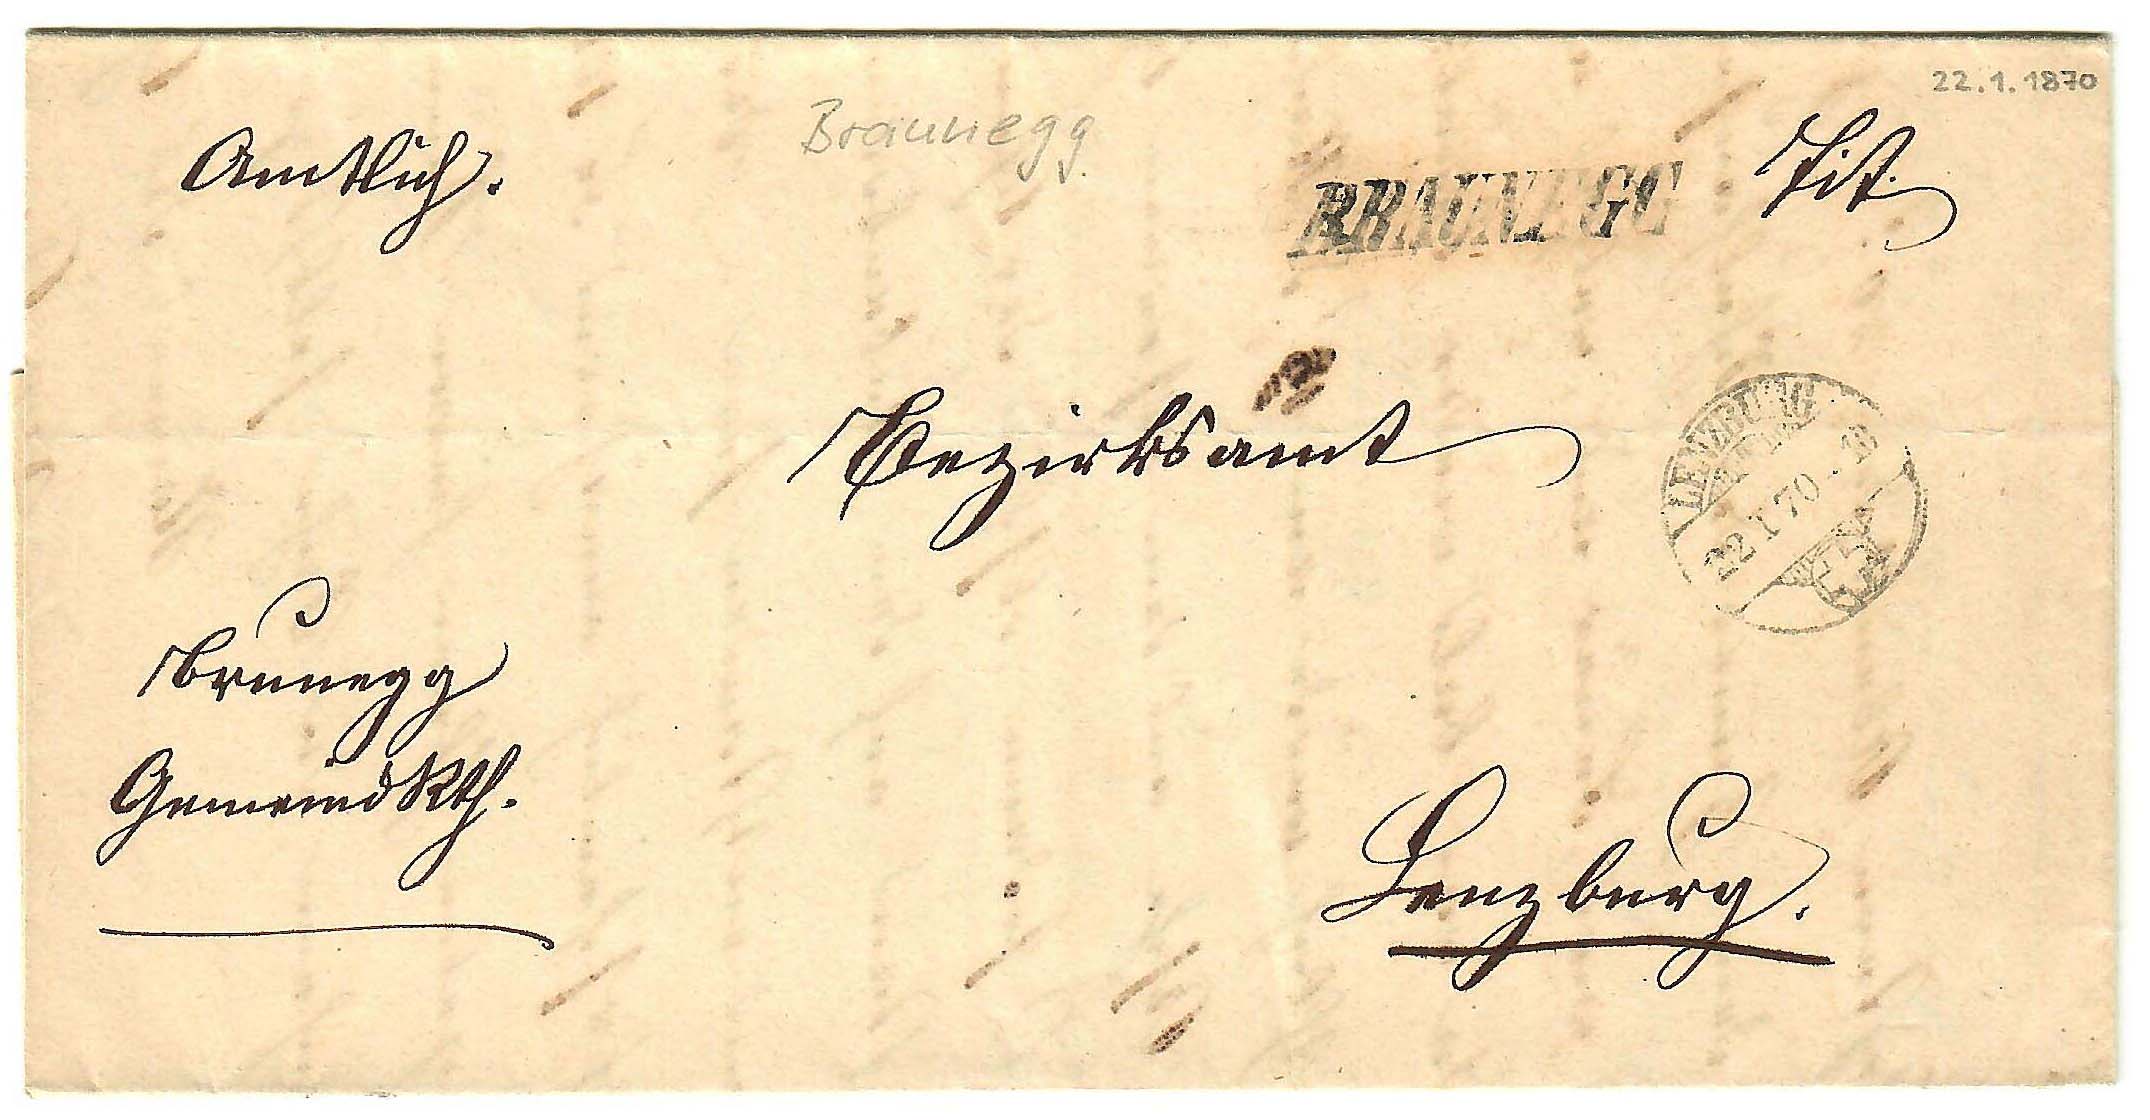 22.1.1870
Amtlich.
Braunegg.
BRAUNEGG
Tit.
Bezirksamt
LENZBURG
22 I 70
Brunegg
Gemeindrth.
Lenzburg.